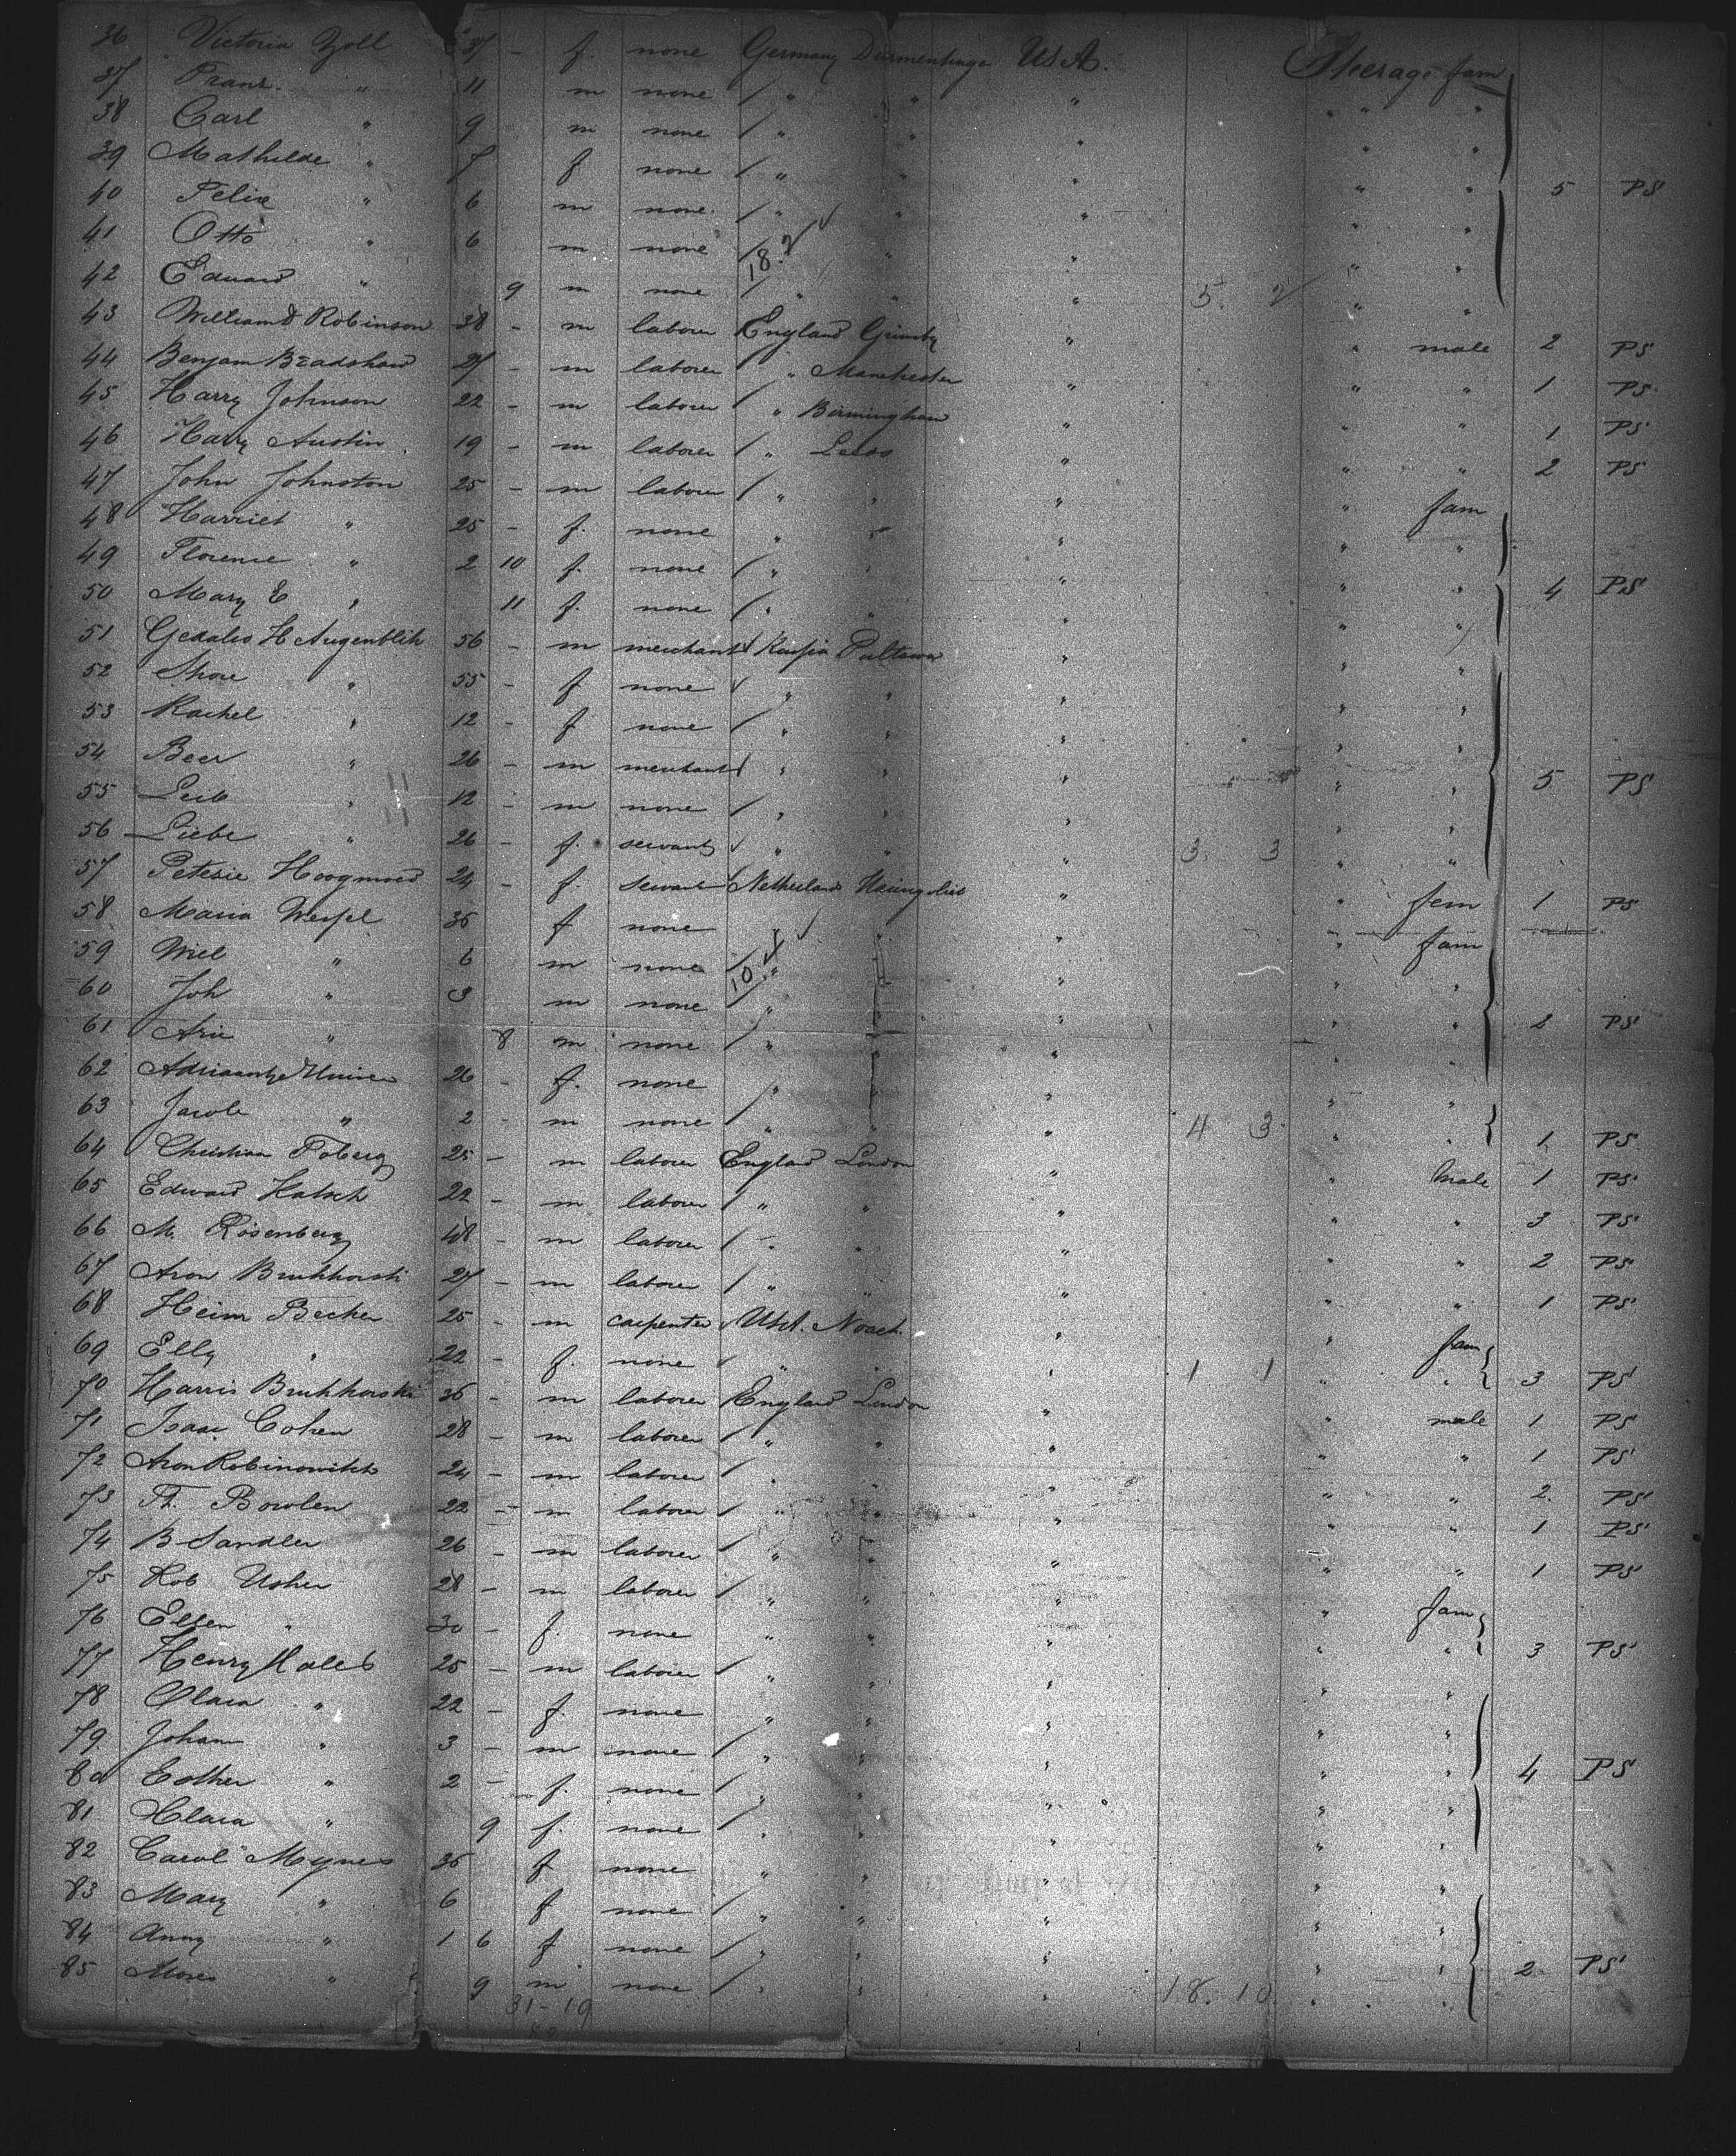 36 Victoria Zoll 37 - f. none Germany Dürmentingen U.S.A. Steerage fam
37 Franz " 11 m none / " " " " "
38 Carl " 9 m none / " " " " "
39 Mathilde " 7 f none / " " " " " 5 PS
40 Felix " 6 m none / " " " " "
41 Otto " 6 m none / " " " " "
42 Eduard " 9 m none / " " " 5. 2 " "
43 William Robinson 38 - m laborer England Grimsby " " male 2 PS
44 Benjam Bradshaw 27 - m laborer / " Manchester " " " 1 PS
45 Harry Johnson 22 - m laborer / " Birmingham " " " 1 PS
46 Harry Austin 19 - m laborer / " Leeds " " " 2 PS
47 John Johnston 25 - m laborer / " " " " fam
48 Harriet " 25 - f. none " " " " "
49 Florence " 2 10 f. none / " " " " " 4 PS
50 Mary E " 11 f. none / " " " " "
51 H Augenblik 56 - m merchant Russia Pultawa " " "
52 " 55 - f none " " " " "
53 Rachel " 12 - f none / " " " " "
54 Beer " 26 - m merchant / " " " " " 5 PS
55 Leib " 12 - m none / " " " " "
56 Liebe " 26 - f. servant " " " 3. 3 " "
57 24 - f. servant Netherlands " " fem 1 PS
58 Maria 35 f none " " " " fam
59 Wiel " 6 m none / " " " " "
60 Joh " 3 m none / " " " " " 2 PS
61 Arie " 8 m none / " " " " "
62 26 - f. none " " " " "
63 Jacob " 2 - m none / " " " 4 3 " " 1 PS
64 Christian Toberg 25 - m laborer England London " " male 1 PS
65 Edward 22 - m laborer / " " " " " 3 PS
66 M. Rosenberg 48 - m laborer / " " " " " 2 PS
67 Aron 27 - m laborer / " " " " " 1 PS
68 Heim Becker 25 - m carpenter USA. " " fam
69 Elly " 22 - f. none " " " 1 1 " " 3 PS
70 Harris 36 - m laborer England London " " male 1 PS
71 Isaac Cohen 28 - m laborer / " " " " " 1 PS
72 Aron Robinowitch 24 - m laborer / " " " " " 2. PS
73 Th. Bowlen 22 - m laborer / " " " " " 1 PS
74 B Sandler 26 - m laborer / " " " " " 1 PS
75 Rob Usher 28 - m laborer / " " " " fam
76 Ellen " 30 - f. none " " " " " 3 PS
77 Henry 25 - m laborer / " " " " "
78 Clara " 22 - f. none " " " " "
79. Johann " 3 - m none / " " " " " 4 PS
80 Esther " 2 - f. none / " " " " "
81 Clara " 9 f. none / " " " " "
82 Carol Mynes 35 f none " " " " "
83 Mary " 6 f none / " " " " "
84 Anny " 1 6 f none / " " " " " 2 PS
85 Moses " 9 m none / " " " 18. 10 " "
31 - 19